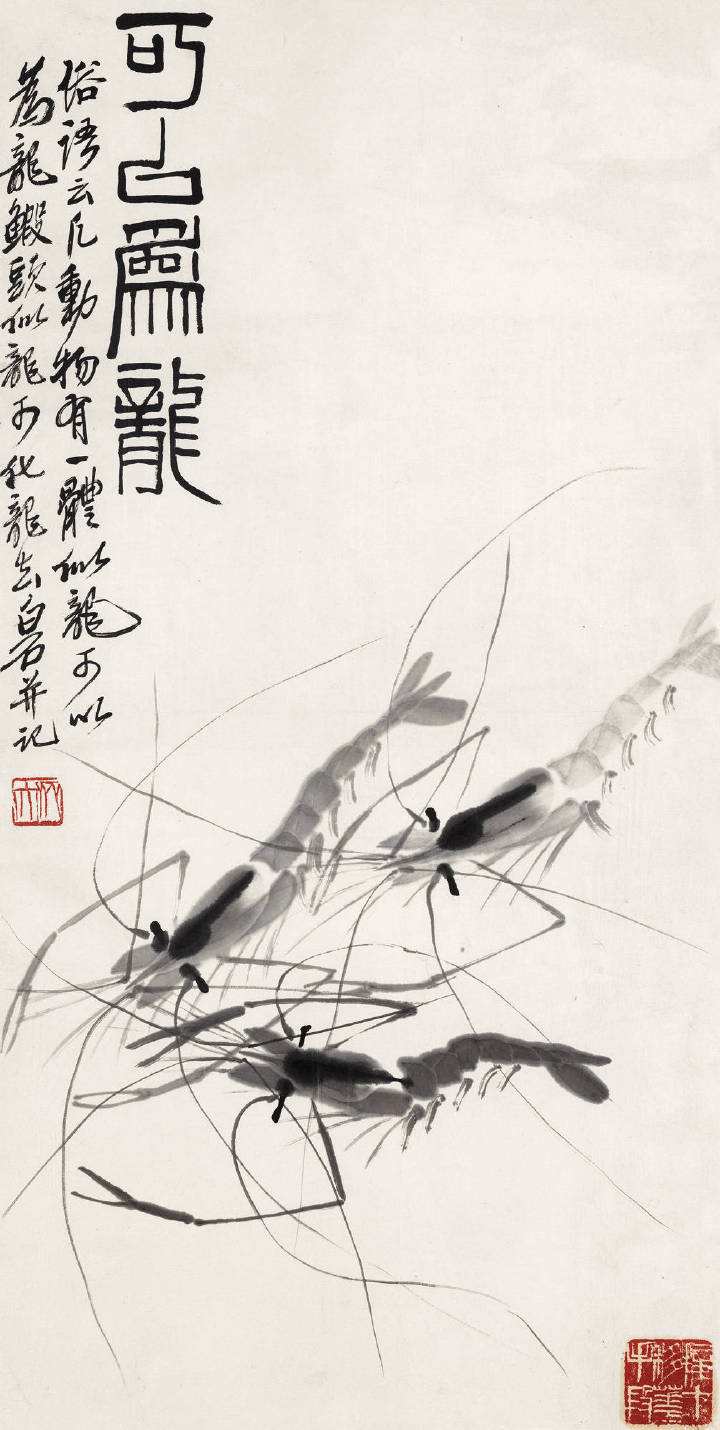 可以為龍
俗語云凡動物有一體似龍可以
為龍鰕頭似龍可化龍去白石并記